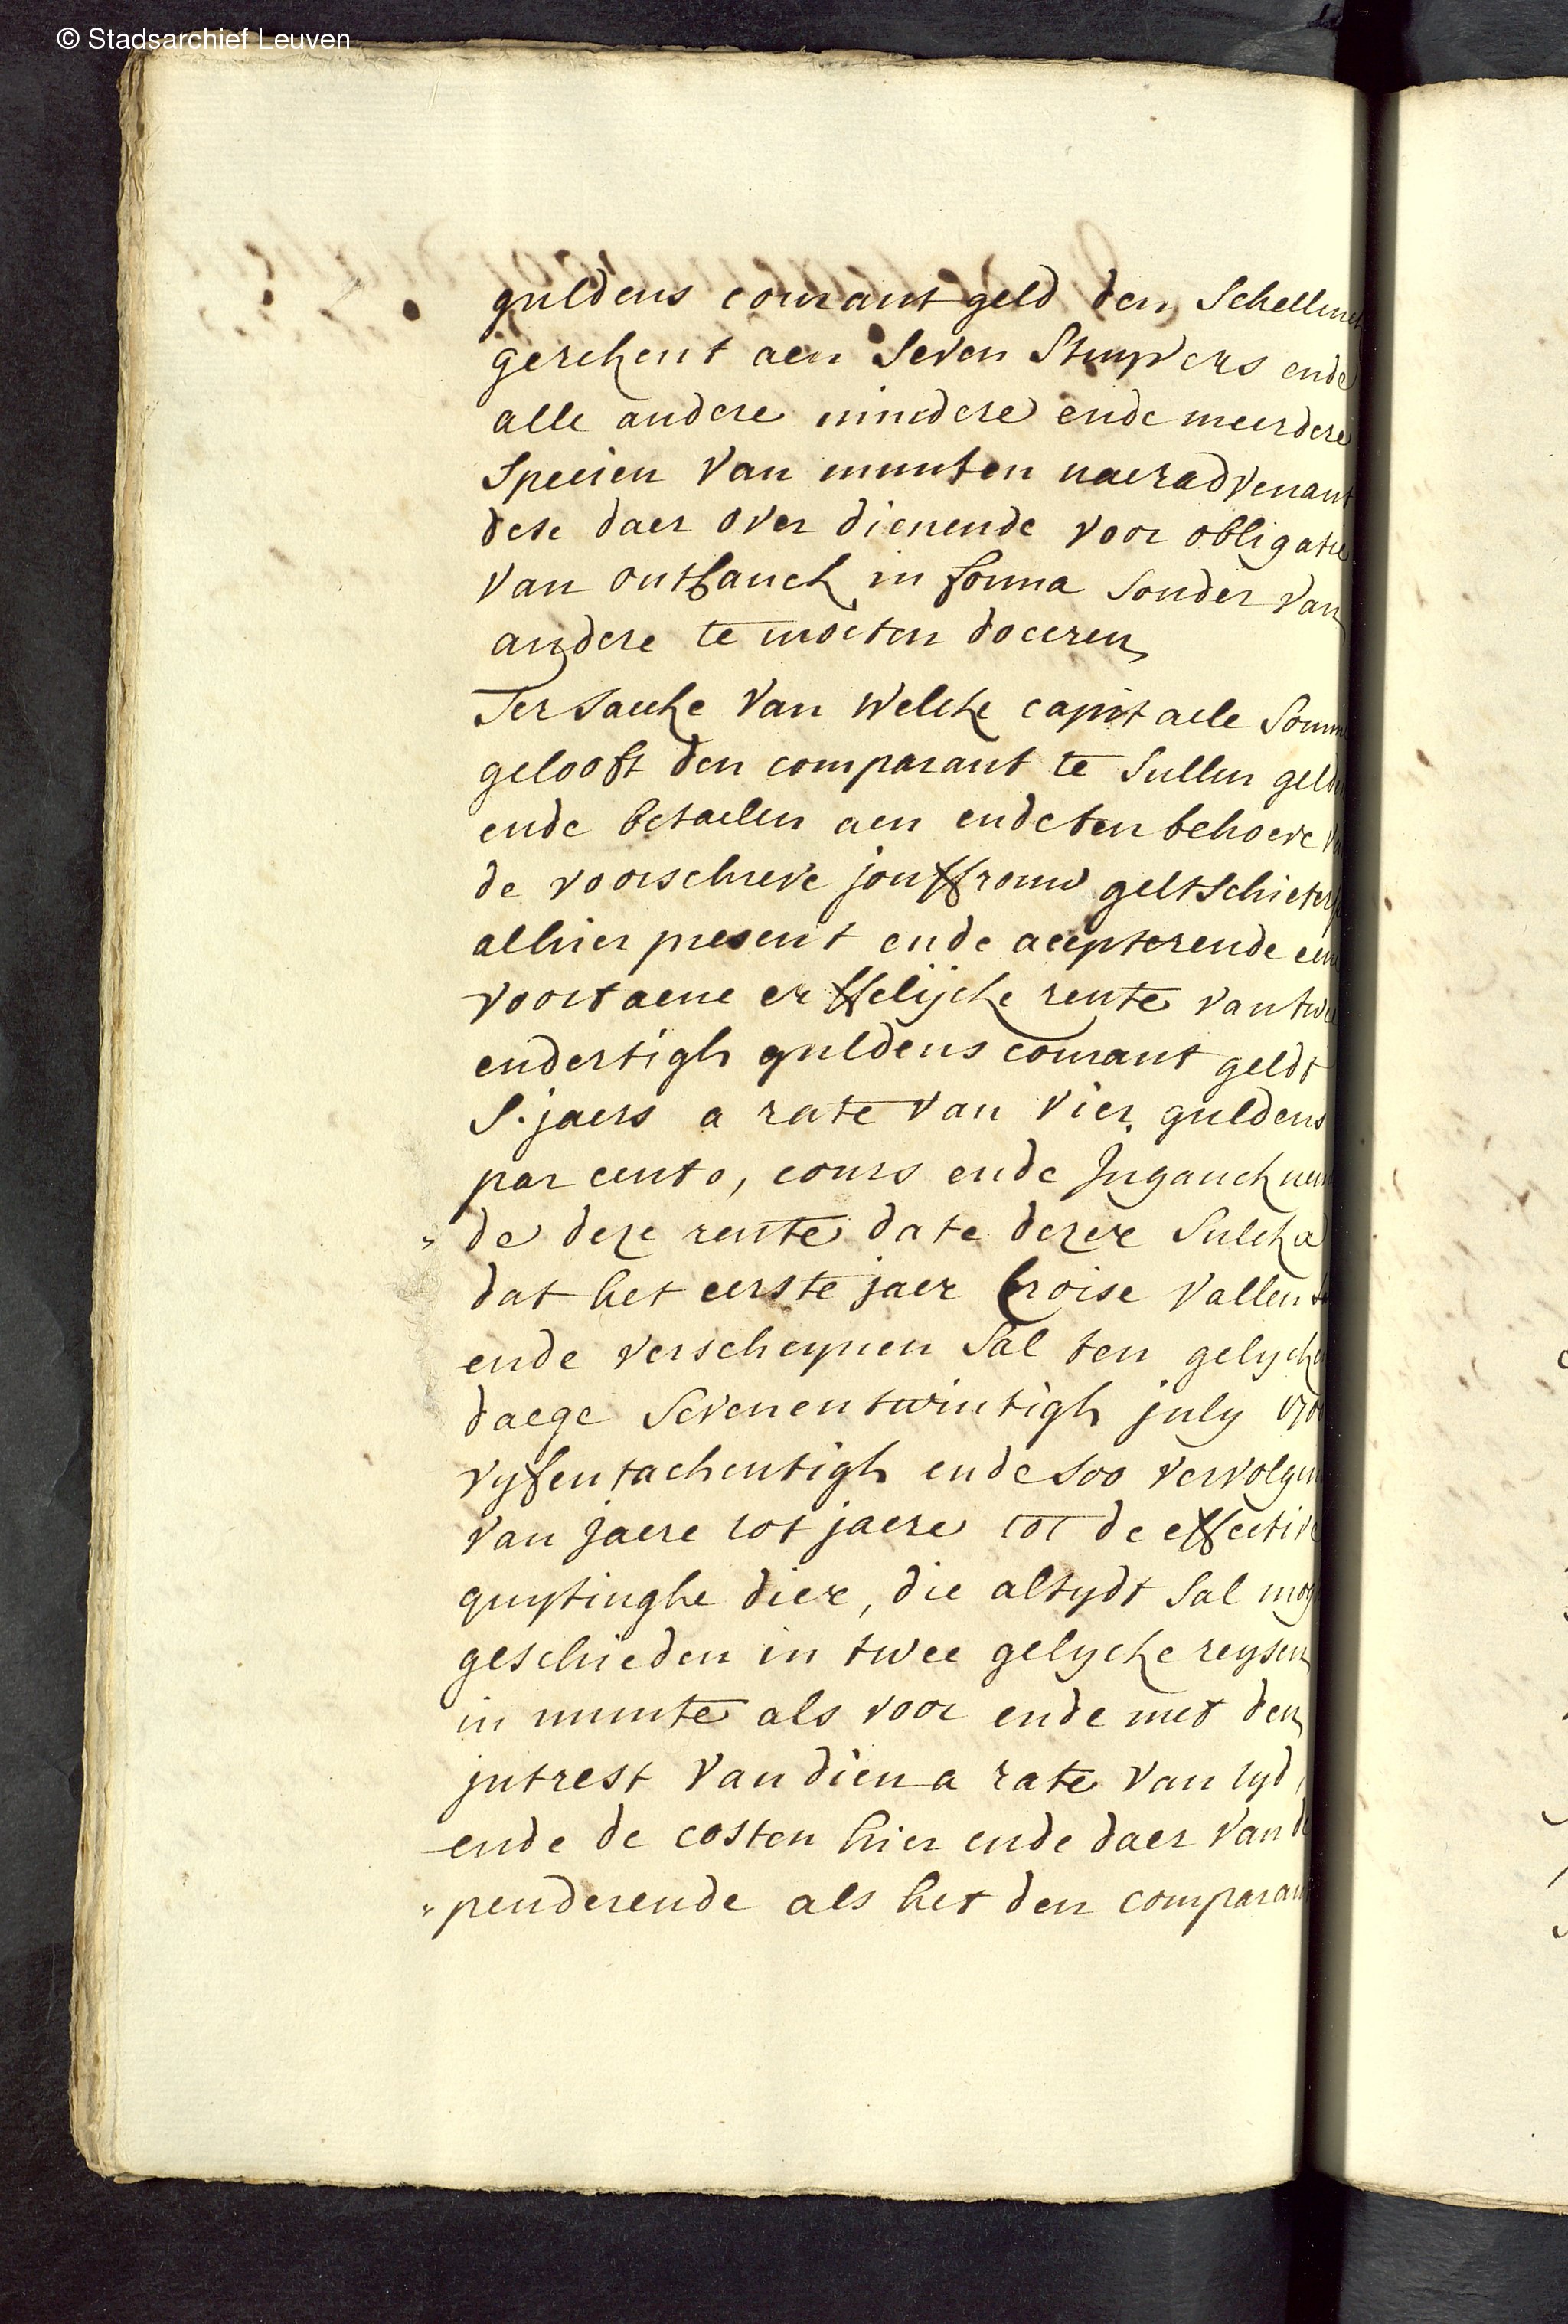 © Stadsarchief Leuven
guldens courant geld den Schellinck
gerekent aen Seven Stuyvers ende
alle andere mindere ende meerdere
Specien van munten naer advenant
dese daer over dienende voor obligatie
van ontfanck in forma sonder van
andere te moeten doceren
Ter saecke van welcke capitaele Somme
gelooft den comparant te sullen gelden
ende betaelen aen ende ten behoeve van
de voorschreve jouffrouw geltschieters
alhier present ende accepterende eene
voortaene erffelijcke rente van twee
endertigh guldens courant geldt
S.jaers a rate van vier guldens
par cento, cours ende Inganck nemen
„ de deze rente date dezer Sulckx
dat het eerste jaer croise vallen
ende verscheynen Sal ten gelycken
daege Sevenentwintigh july 1700
vyfentachentigh ende soo vervolgens
van jaere tot jaere tot de effective
quytinghe dier, die altydt Sal mogen
geschieden in twee gelycke reysen
in munte als voor ende met den
intrest van dien a rate van tyd
ende de costen hier ende daer van de
„ penderende als het den comparant